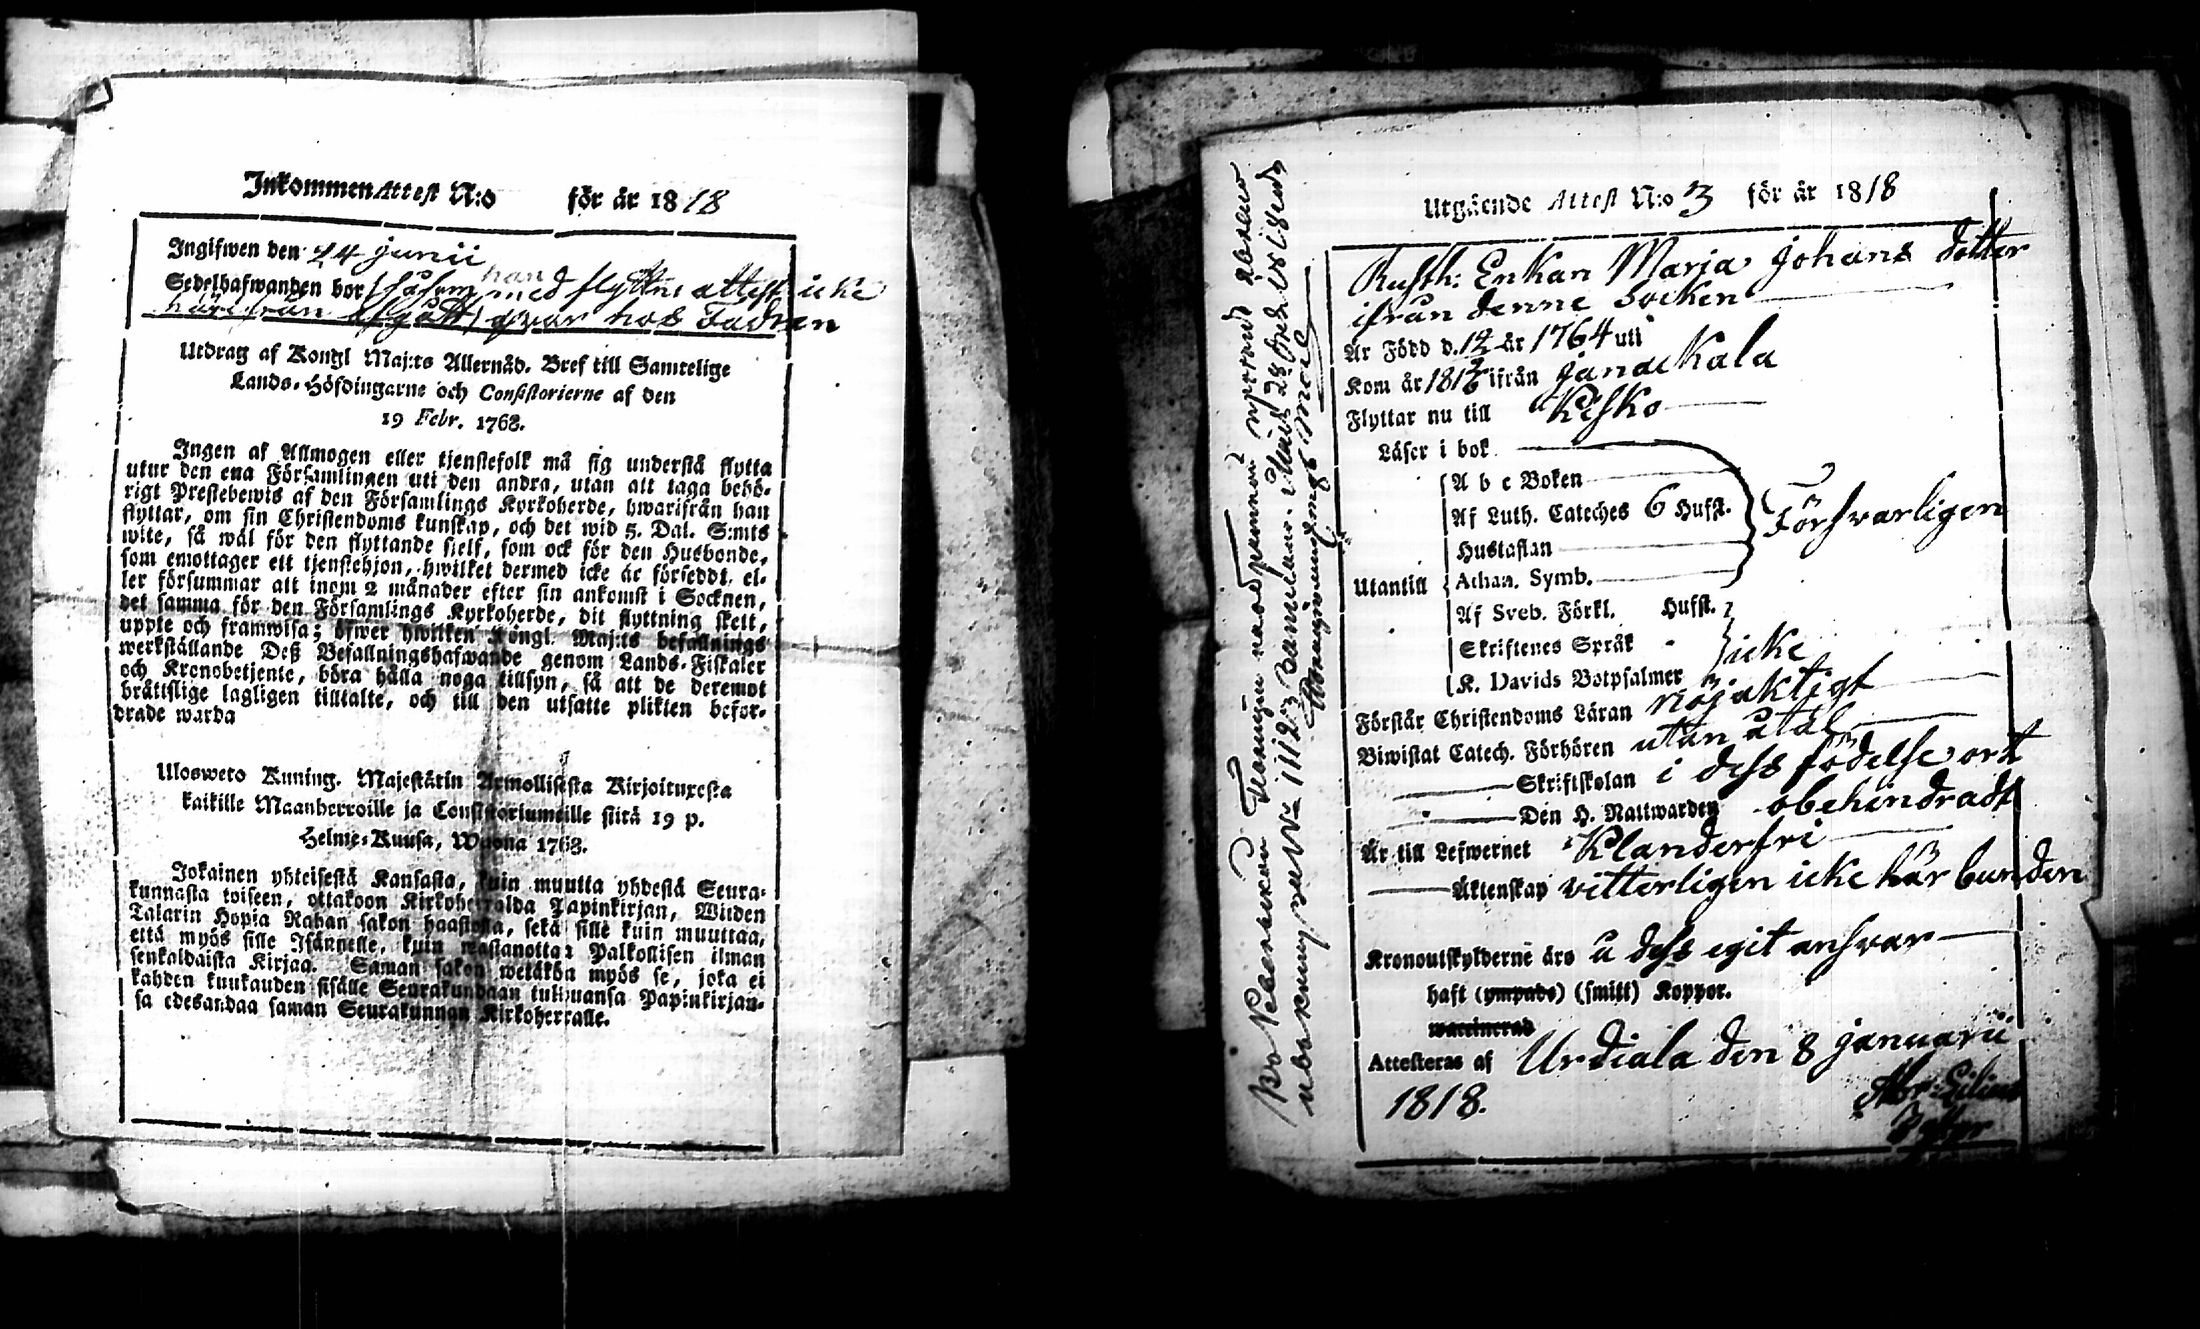 Inkommen Attest N:o för år 1818
Ingifwen den 24 junii
Sedelhafwanden bor (såsom med flyttni attest icke
han
härifrån afgått) qvar hos Fadren
Utdrag af Kongl Maj:ts Allernåd. Bref till Samtelige
Lands-Höfdingarne och Consistorierne af den
19 Febr. 1763.
Ingen af Allmogen eller tjenstefolk må sig understå flytta
utur den ena Församlingen uti den andra, utan att taga behö-
rigt Prestebewis af den Församlings Kyrkoherde, hwarifrån han
flyttar, om sin Christendoms kunskap, och det wid 5. Dal. S:mts
wite, så wäl för den flyttande sielf, som ock för den Husbonde,
som emottager ett tjenstehjon, hwilket dermed icke är försedd, el-
ler försummar att inom 2 månader efter sin ankomst i Socknen,
det samma för den Församlings Kyrkoherde, dit flyttning skett,
uppte och framwisa; öfwer hwilken Kongl. Maj:ts befallnings
werkställande Deß Befallningshafwande genom Lands-Fiskaler
och Kronobetjente, böra hålla noga tillsyn, så att de deremot
bråttslige lagligen tilltalte, och till den utsatte plikten befor-
drade warda
Uloswето Kuning. Majestätin Armollisesta Kirjoituxesta
kaikille Maanherroille ja Consistoriumeille siitä 19 p.
Helme-Kuusa, Wuona 1763.
Jokainen yhteisestä Kansasta, kuin muutta yhdestä Seura-
kunnasta toiseen, ottakoon Kirkoherralda Papinkirjan, Wiiden
Talarin Hopia Rahan sakon haastolla, sekä sille kuin muuttaa,
että myös sille Isännelle, kuin wastanottaa Palkollisen ilman
senkaldaista Kirjaa. Saman sakon wetäkön myös se, joka ei
kahden kuukauden sisälle Seurakundaan tultuansa Papinkirjan-
sa edesandaa saman Seurakunnan Kirkoherralle.
Utgående Attest N:o 3 för år 1818
Rusth: Enkan Maria Johans dotter
ifrån denne Socken
Är Född d. 12 år 1764 uti
Kom år 1813 ifrån Janackala
Flyttar nu till Kisko
Läser i bok
A b c Boken
Af Luth. Cateches 6 Hufst.
Försvarligen
Hustaflan
Utantill
Athan. Symb.
Af Sveb. Förkl. Hufst.
Skriftenes Språk
icke
K. Davids Botpsalmer
Förstår Christendoms Läran nöjaktigt
Biwistat Catech. Förhören utan åtal
Skriftskolan i dess födelse ort
Den H. Nattwarden obehindradt
Är till Lefwernet Klanderfri
Äktenskap vetterligen icke här bunden
Kronoutskylderne äro å dess egit answar
haft (ympade) (smitt) Koppor.
waccinerad
Attesteras af Urdiala den 8 januarii
1818.